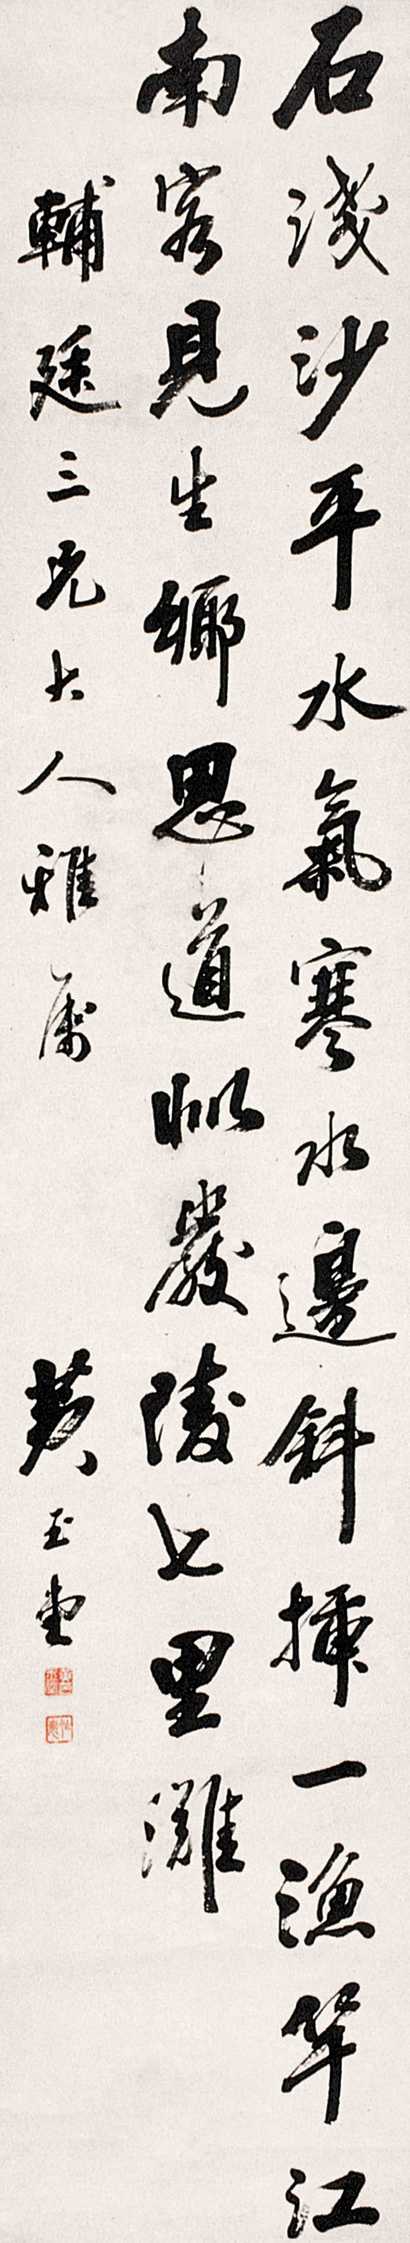 石淺沙平水氣寒水邊斜插一漁竿江
南客見生鄉思道似嚴陵七里灘
輔廷三兄大人雅屬
黃玉堂